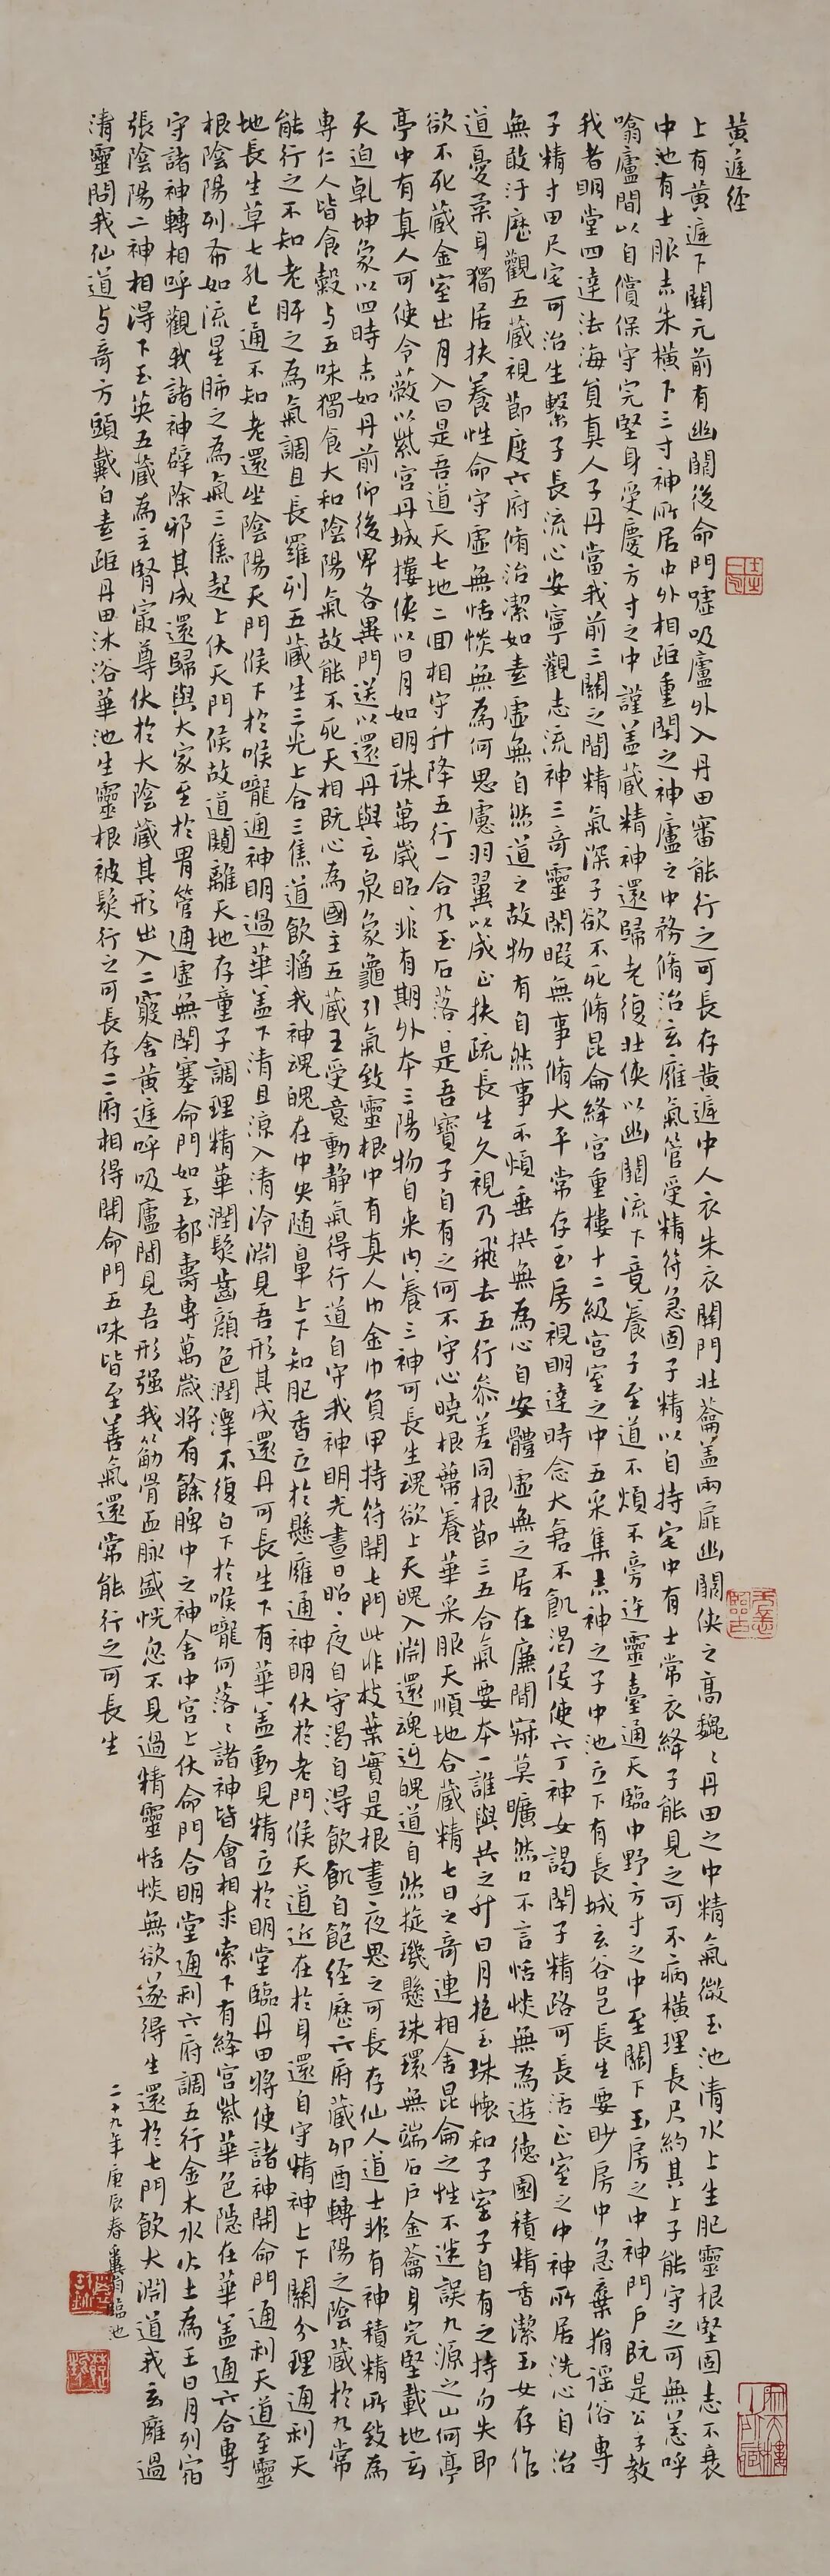 黃庭經
上有黃庭下關元前有幽闕後命門噓吸廬外入丹田審能行之可長存黃庭中人衣朱衣關門壯蘥蓋兩扉幽闕俠之高巍、丹田之中精氣微玉池清水上生肥靈根堅固志不衰
中池有士服赤朱橫下三寸神所居中外相距重閉之神廬之中務脩治玄廱氣管受精符急固子精以自持宅中有士常衣絳子能見之可不病橫理長尺約其上子能守之可無恙呼
噏廬間以自償保守完堅身受慶方寸之中謹蓋藏精神還歸老復壯俠以幽闕流下竟養子至道不煩不旁迕靈臺通天臨中野方寸之中至關下玉房之中神門戶既是公子教
我者明堂四達法海員真人子丹當我前三關之間精氣深子欲不死脩昆侖絳宮重樓十二級宮室之中五采集赤神之子中池立下有長城玄谷邑長生要眇房中急棄捐淫俗專
子精寸田尺宅可治生繫子長流心安寧觀志流神三奇靈閑暇無事脩太平常存玉房視明達時念大倉不飢渴役使六丁神女謁閉子精路可長活正室之中神所居洗心自治
無敢汙歷觀五藏視節度六府脩治潔如素虛無自然道之故物有自然事不煩垂拱無為心自安體虛無之居在廉間寂莫曠然口不言恬惔無為遊德園積精香潔玉女存作
道憂柔身獨居扶養性命守虛無恬惔無為何思慮羽翼以成正扶疏長生久視乃飛去五行參差同根節三五合氣要本一誰與共之升日月抱玉珠懷和子室子自有之持勿失即
欲不死藏金室出月入日是吾道天七地二回相守升降五行一合九玉石落、是吾寶子自有之何不守心曉根蔕養華采服天順地合藏精七日之奇連相舍昆侖之性不迷誤九源之山何亭
亭中有真人可使令蔽以紫宮丹城樓俠以日月如明珠萬歲昭、非有期外本三陽物自來內養三神可長生魂欲上天魄入淵還魂返魄道自然旋璣懸珠環無端石戶金蘥身完堅載地玄
天迫乾坤象以四時赤如丹前仰後卑各異門送以還丹與玄泉象龜引氣致靈根中有真人巾金巾負甲持符開七門此非枝葉實是根晝夜思之可長存仙人道士非有神積精所致為
專仁人皆食穀与五味獨食大和陰陽氣故能不死天相既心為國主五藏王受意動靜氣得行道自守我神明光晝日昭、夜自守渴自得飲飢自飽經歷六府藏卯酉轉陽之陰藏於九常
能行之不知老肝之為氣調且長羅列五藏生三光上合三焦道飲醬我神魂魄在中央隨鼻上下知肥香立於懸廱通神明伏於老門候天道近在於身還自守精神上下關分理通利天
地長生草七孔已通不知老還坐陰陽天門候下於喉嚨通神明過華蓋下清且涼入清泠淵見吾形其成還丹可長生下有華蓋動見精立於明堂臨丹田將使諸神開命門通利天道至靈
根陰陽列布如流星肺之為氣三焦起上伏天門候故道闚離天地存童子調理精華潤髮齒顏色潤澤不復白下於喉嚨何落、諸神皆會相求索下有絳宮紫華色隱在華蓋通六合專
守諸神轉相呼觀我諸神辟除邪其成還歸與大家至於胃管通虛無閉塞命門如玉都壽專萬歲將有餘脾中之神舍中宮上伏命門合明堂通利六府調五行金木水火土為王日月列宿
張陰陽二神相得下玉英五藏為主腎最尊伏於大陰藏其形出入二竅舍黃庭呼吸廬間見吾形强我筋骨血脉盛恍忽不見過精靈恬惔無欲遂得生還於七門飲大淵道我玄廱過
清靈問我仙道与奇方頭戴白素距丹田沐浴華池生靈根被髮行之可長存二府相得開命門五味皆至善氣還常能行之可長生
二十九年庚辰春 臨池